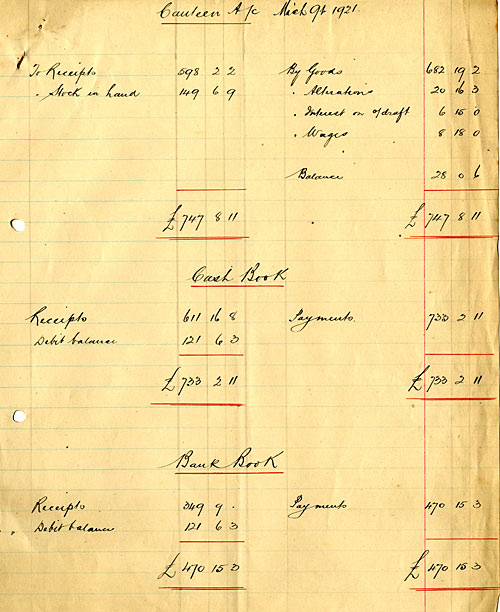 Canteen A/c Mich Qt 1921
To Receipts 598 2 2 By Goods 682 19 2
" Stock in hand 149 6 9 " Alterations 20 16 3
" Interest on o/draft 6 15 0
" Wages 8 18 0
Balance 28 0 6
£ 747 8 11 £ 747 8 11
Cash Book
Receipts 611 16 8 Payments 733 2 11
Debit balance 121 6 3
£ 733 2 11 £ 733 2 11
Bank Book
Receipts 349 9 . Payments 470 15 3
Debit balance 121 6 3
£ 470 15 3 £ 470 15 3